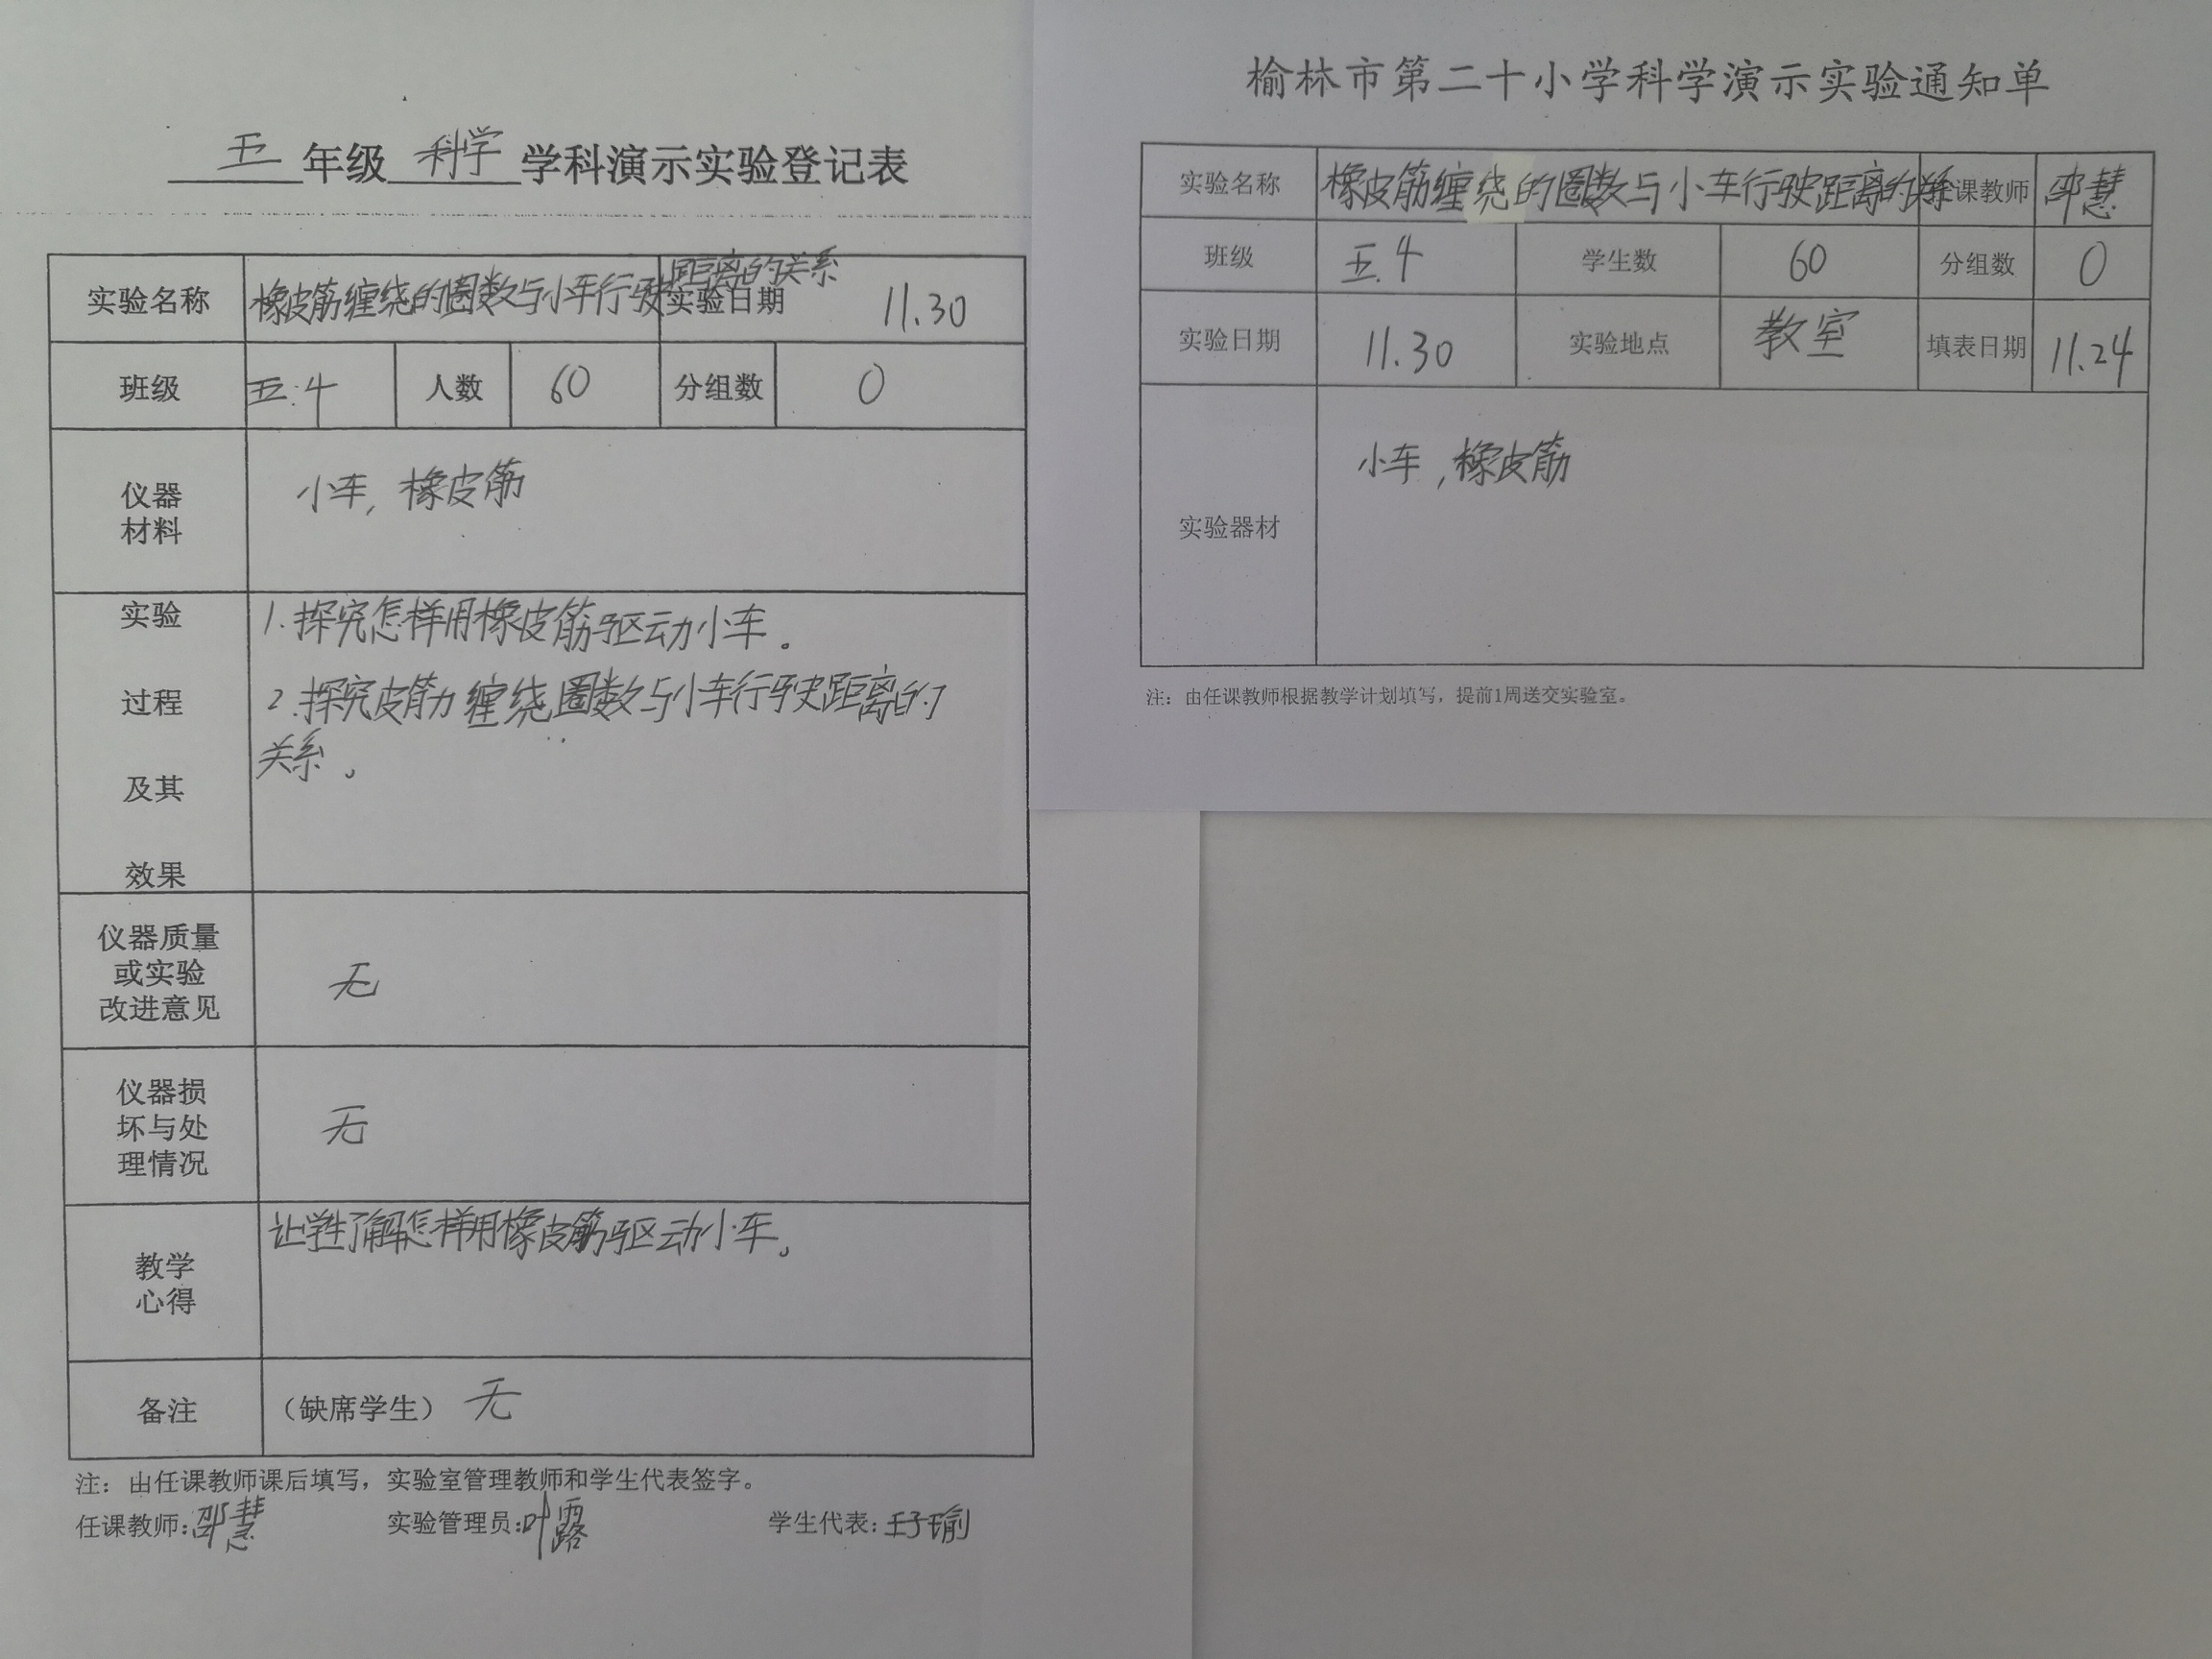 五年级科学学科演示实验登记表
实验名称 橡皮筋缠绕的圈数与小车行驶距离的关系 实验日期 11.30
班级 五.4 人数 60 分组数 0
仪器
材料
小车, 橡皮筋
实验
过程
及其
效果
1.探究怎样用橡皮筋驱动小车。
2.探究皮筋缠绕圈数与小车行驶距离的
关系。
仪器质量
或实验
改进意见
无
仪器损
坏与处
理情况
无
教学
心得
让学生了解怎样用橡皮筋驱动小车。
备注 (缺席学生) 无
注：由任课教师课后填写，实验室管理教师和学生代表签字。
任课教师:邵慧 实验管理员:叶露 学生代表:王子瑜
榆林市第二十小学科学演示实验通知单
实验名称 橡皮筋缠绕的圈数与小车行驶距离的关系 任课教师 邵慧
班级 五.4 学生数 60 分组数 0
实验日期 11.30 实验地点 教室 填表日期 11.24
实验器材
小车,橡皮筋
注：由任课教师根据教学计划填写，提前1周送交实验室。